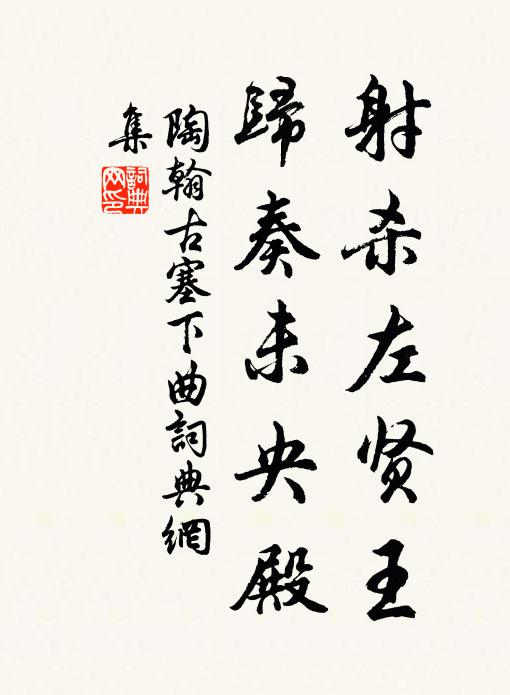 射杀左贤王
歸奏未央殿
陶翰古塞下曲詞典網
集
詞典網印